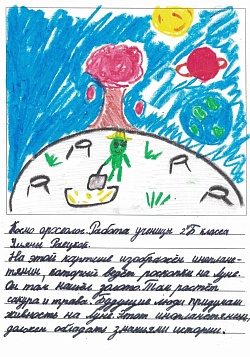 Космо археолог. Работа ученицы 2"Б" класса
Рлецкой.
На этой картине изображён инопла-
тянин, который ведёт раскопки на Луне.
Он там нашёл золото. Там растёт
сакура и трава. Будущие люди придумали
живность на Луне. Этот инопланетянин
должен обладать знаниями истории.